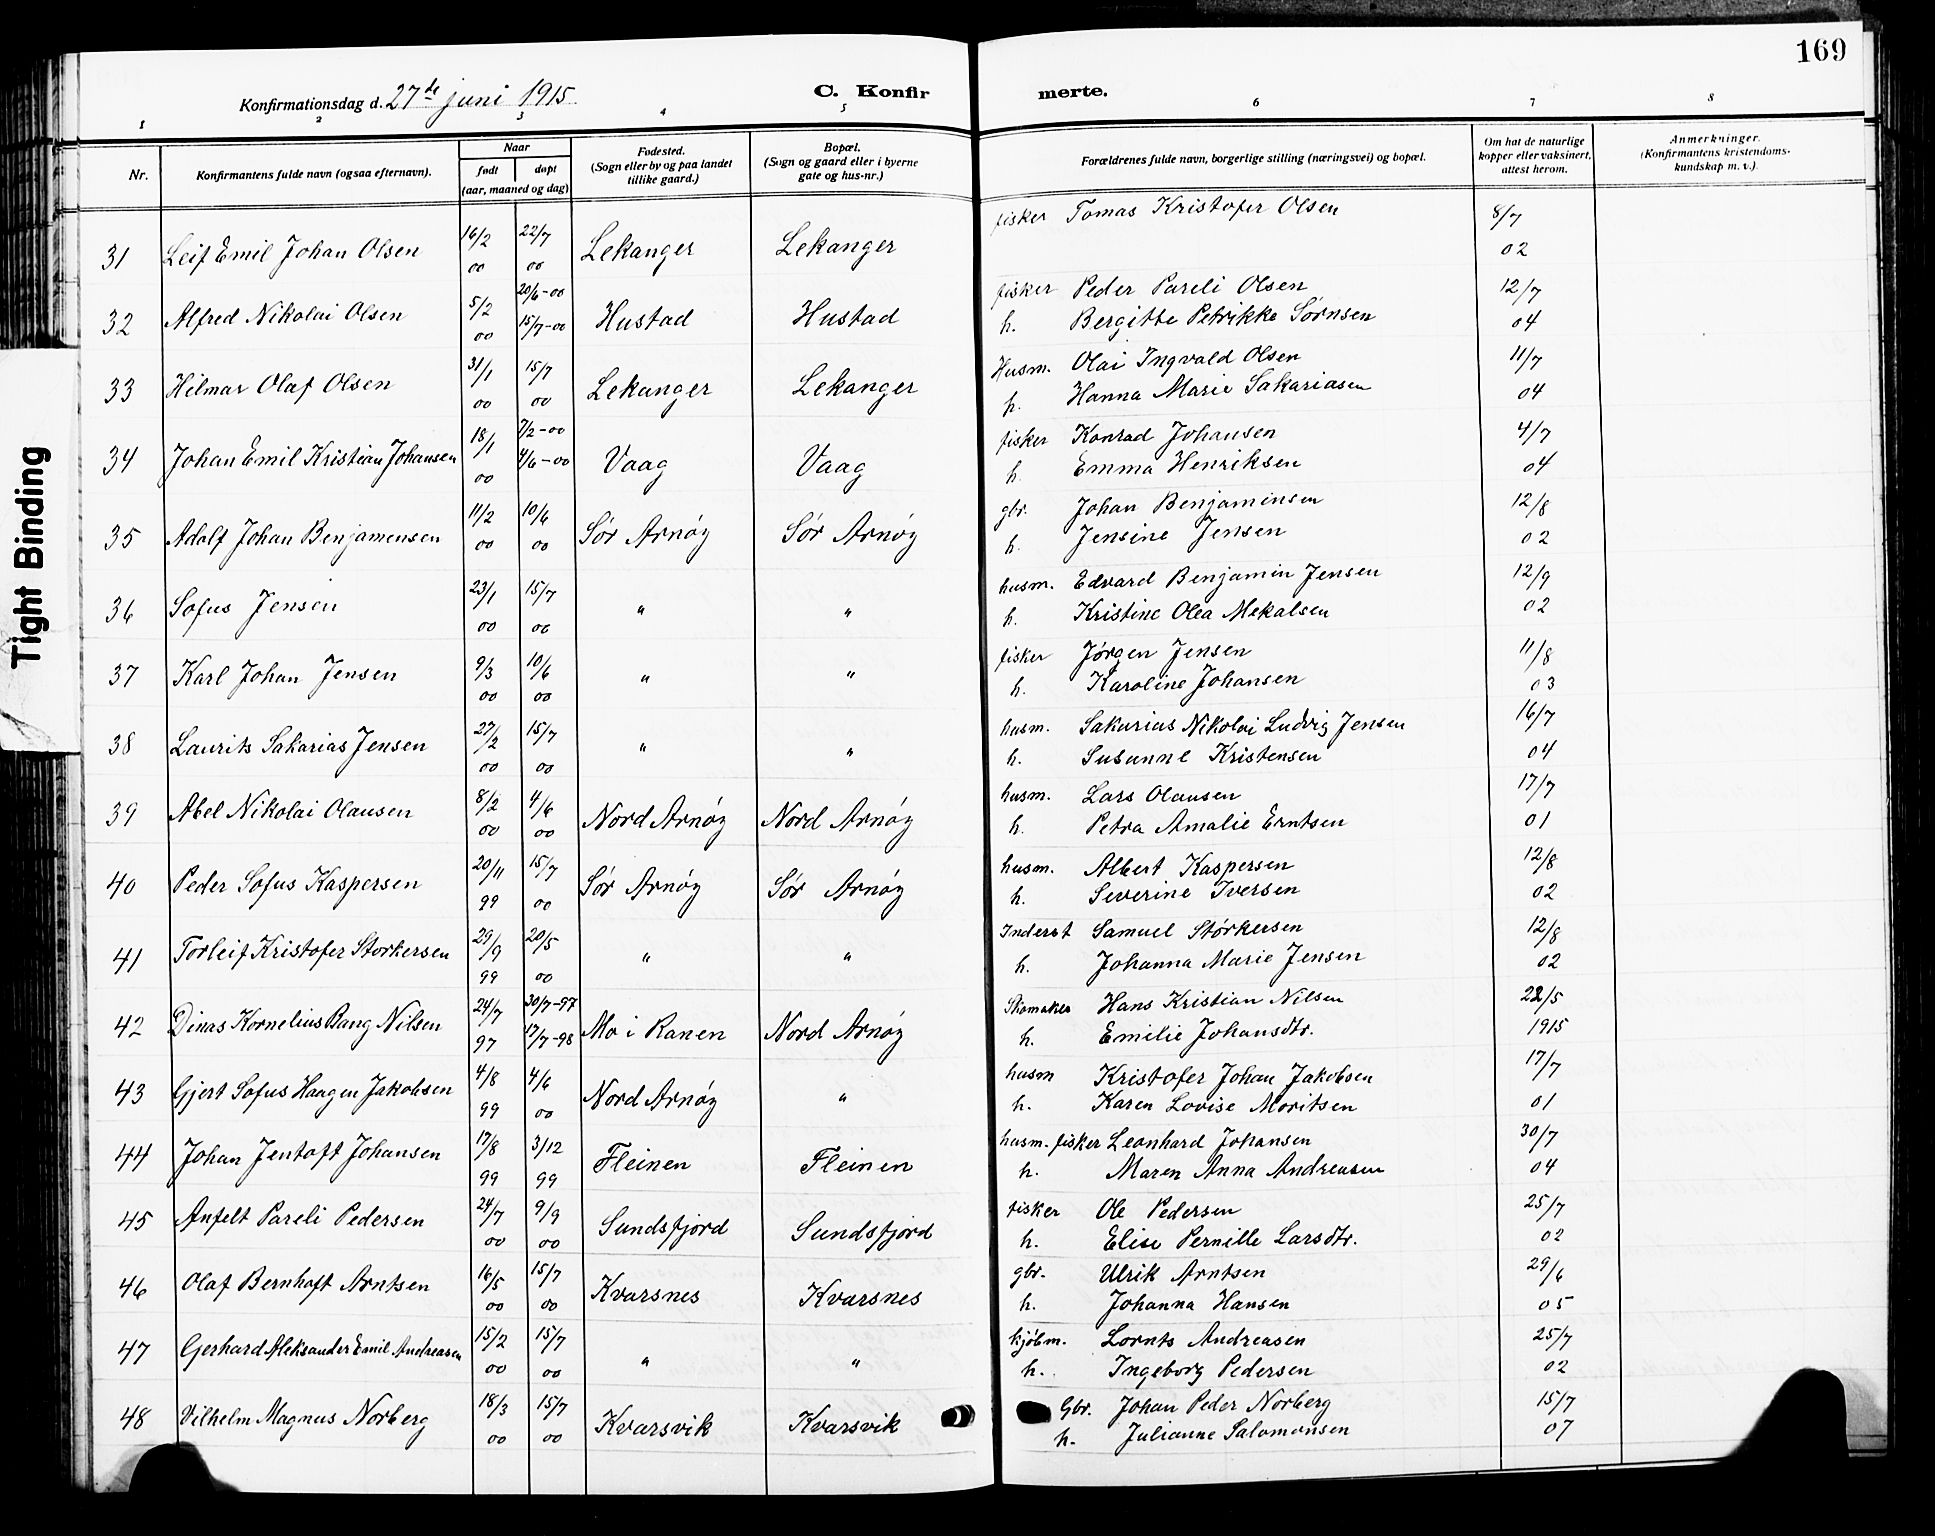 169
Konfirmationsdag d. 27de juni 1915.
C. Konfirmerte.
1 2 3 4 5 6 7 8
Nr.
Konfirmantens fulde navn (ogsaa efternavn).
Naar
født døpt
(aar, maaned og dag)
Fødested.
(Sogn eller by og paa landet
tillike gaard.)
Bopæl.
(Sogn og gaard eller i byerne
gate og hus-nr.)
Forældrenes fulde navn, borgerlige stilling (næringsvei) og bopæl.
Om hat de naturlige
kopper eller vaksinert,
attest herom.
Anmerkninger.
(Konfirmantens kristendoms-
kundskap m. v.).
31 Leif Emil Johan Olsen 16/2 00 22/7 00 Lekanger Lekanger fisker Tomas Kristofer Olsen 8/7 02
32 Alfred Nikolai Olsen 5/2 00 20/6-00 15/7-00 Hustad Hustad fisker Peder Pareli Olsen 12/7
h. Bergitte Petrikke Sørnsen 04
33 Hilmar Olaf Olsen 31/1 00 15/7 00 Lekanger Lekanger Husm. Olai Ingvald Olsen 11/7
h. Hanna Marie Sakariasen 04
34 Johan Emil Kristian Johansen 18/1 00 7/2-00 4/6-00 Vaag Vaag fisker Konrad Johansen 4/7
h. Emma Henriksen 04
35 Adolf Johan Benjamensen 11/2 00 10/6 00 Sør Arnøy Sør Arnøy gbr. Johan Benjaminsen 12/8
h. Jensine Jensen 02
36 Sofus Jensen 23/1 00 15/7 00 " " husm. Edvard Benjamin Jensen 12/9
h. Kristine Olea Mekalsen 02
37 Karl Johan Jensen 9/3 00 10/6 00 " " fisker Jørgen Jensen 11/8
h. Karoline Johansen 03
38 Laurits Sakarias Jensen 27/2 00 15/7 00 " " husm. Sakarias Nikolai Ludvig Jensen 16/7
h. Susanne Kristensen 04
39 Abel Nikolai Olausen 8/2 00 4/6 00 Nord Arnøy Nord Arnøy husm. Lars Olausen 17/7
h. Petra Amalie Erntsen 01
40 Peder Sofus Kaspersen 20/11 99 15/7 00 Sør Arnøy Sør Arnøy husm. Albert Kaspersen 12/8
h. Severine Iversen 02
41 Torleif Kristofer Storkersen 29/9 99 20/5 00 " " Inderst Samuel Størkersen 12/8
h. Johanna Marie Jensen 02
42 Dinas Kornelius Bang Nilsen 24/7 97 30/7-97 17/7-98 Mo i Ranen Nord Arnøy Skomaker Hans Kristian Nilsen 22/5
h. Emilie Johansdtr. 1915
43 Gjert Sofus Haagen Jakobsen 4/8 99 4/6 00 Nord Arnøy " husm Kristofer Johan Jakobsen 17/7
h. Karen Lovise Moritsen 01
44 Johan Jentoft Johansen 17/8 99 3/12 99 Fleinen Fleinen husm. fisker Leonhard Johansen 30/7
h. Maren Anna Andreasen 04
45 Anfelt Pareli Pedersen 24/7 00 9/9 00 Sundsfjord Sundsfjord fisker Ole Pedersen 25/7
h. Elise Pernille Larsdtr. 02
46 Olaf Bernhoft Arntsen 16/5 00 15/7 00 Kvarsnes Kvarsnes gbr. Ulrik Arntsen 29/6
h. Johanna Hansen 05
47 Gerhard Aleksander Emil Andreasen 15/2 00 15/7 00 " " kjøbm. Lornts Andreasen 25/7
h. Ingeborg Pedersen 02
48 Vilhelm Magnus Norberg 18/3 00 15/7 00 Kvarsvik Kvarsvik Gbr. Johan Peder Norberg 15/7
h. Julianne Salomonsen 07
Tight Binding